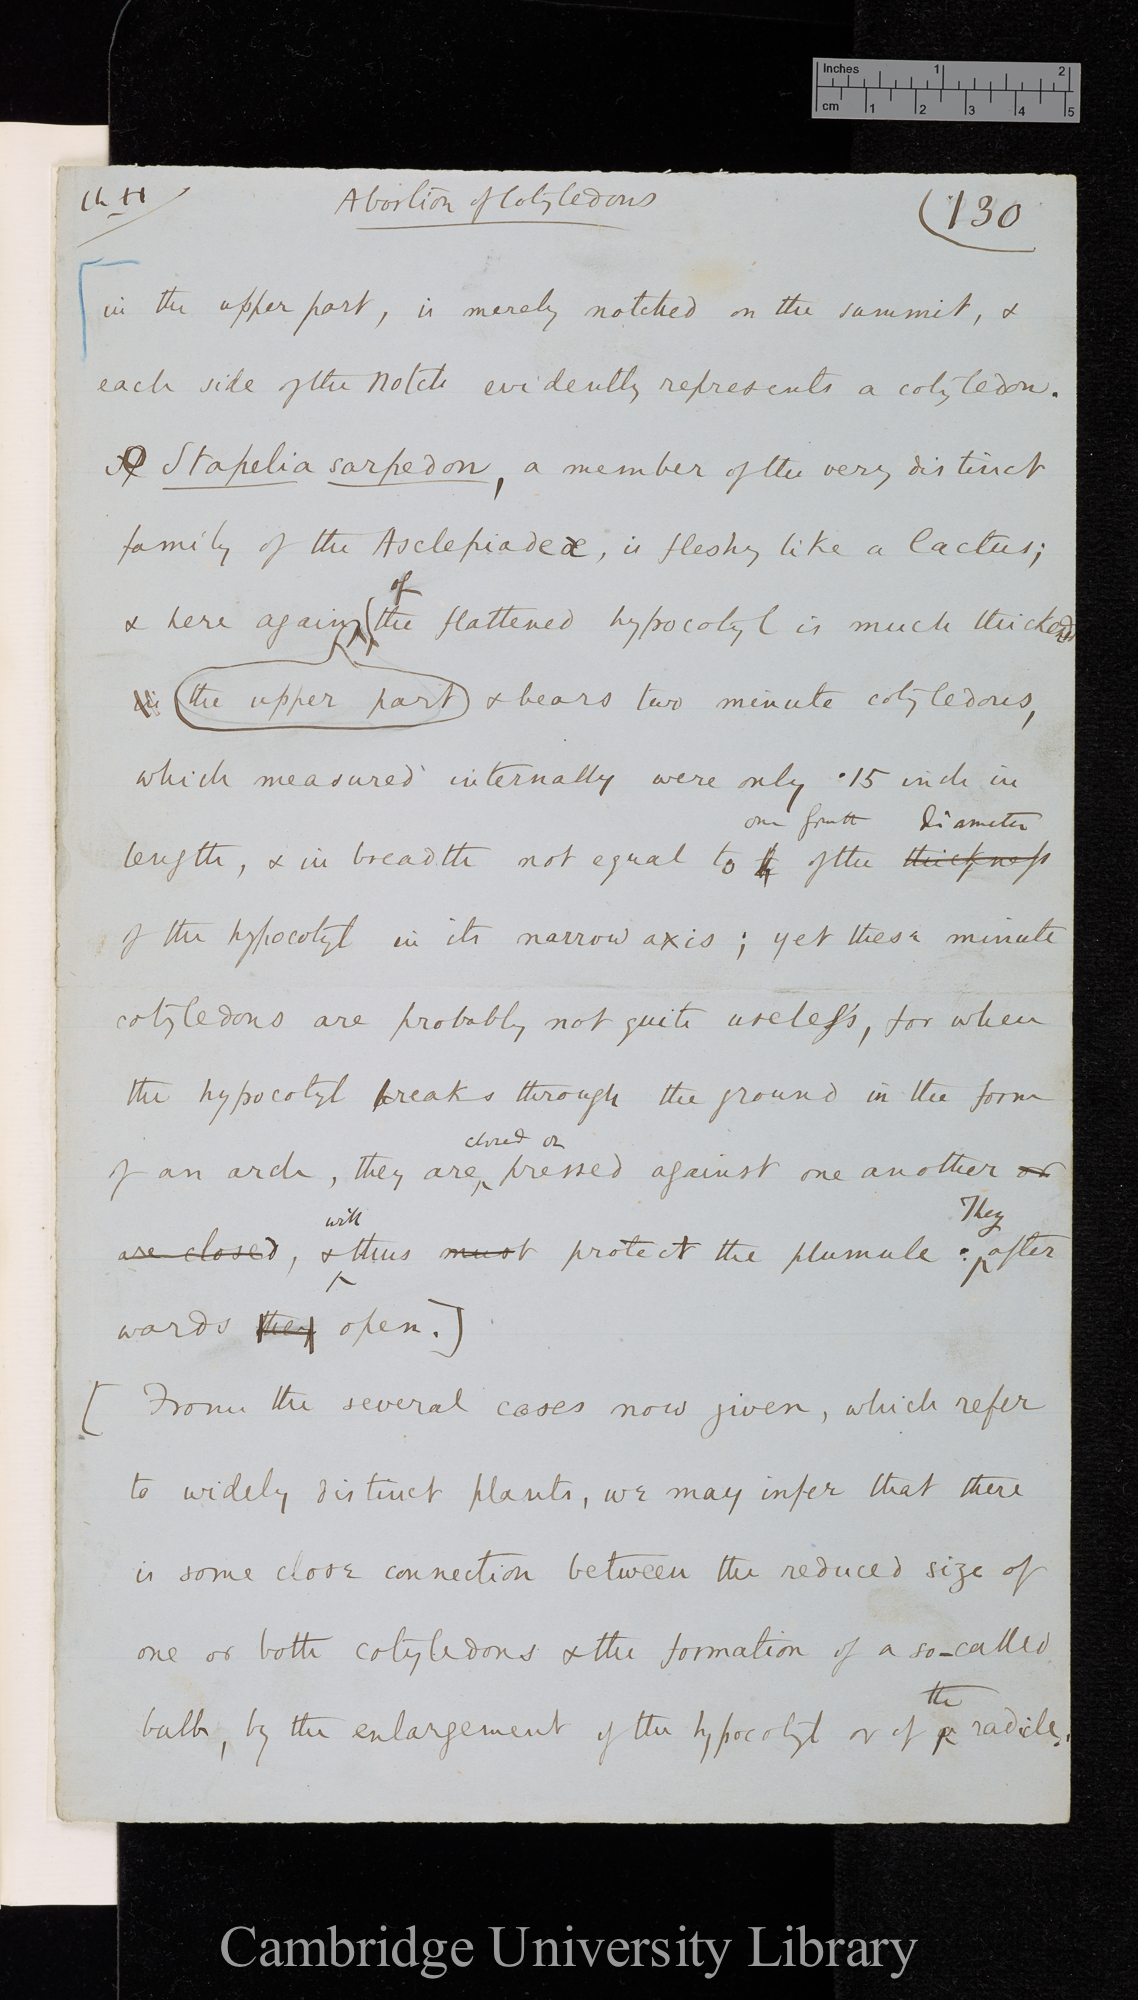 Inches 1 2
cm 1 2 3 4 5
Ch II Abortion of Cotyledons (130
[in the upper part, is merely notched on the summit, &
each side of the notch evidently represents a cotyledon.
Stapelia sarpedon, a member of the very distinct
family of the Asclepiadeæ, is fleshy like a Cactus;
of
& here again (the flattened hypocotyl is much thickened
in (the upper part) & bears two minute cotyledons,
which measured internally were only ·15 inch in
one fourth diameter
length, & in breadth not equal to ¼ of the thickness
of the hypocotyl in its narrow axis; yet these minute
cotyledons are probably not quite useless, for when
the hypocotyl breaks through the ground in the form
closed or
of an arch, they are pressed against one another or
will They
are closed, & thus must protect the plumule. after
wards they open.]
[From the several cases now given, which refer
to widely distinct plants, we may infer that there
is some close connection between the reduced size of
one or both cotyledons & the formation of a so-called
the
bulb, by the enlargement of the hypocotyl or of radicle.
Cambridge University Library